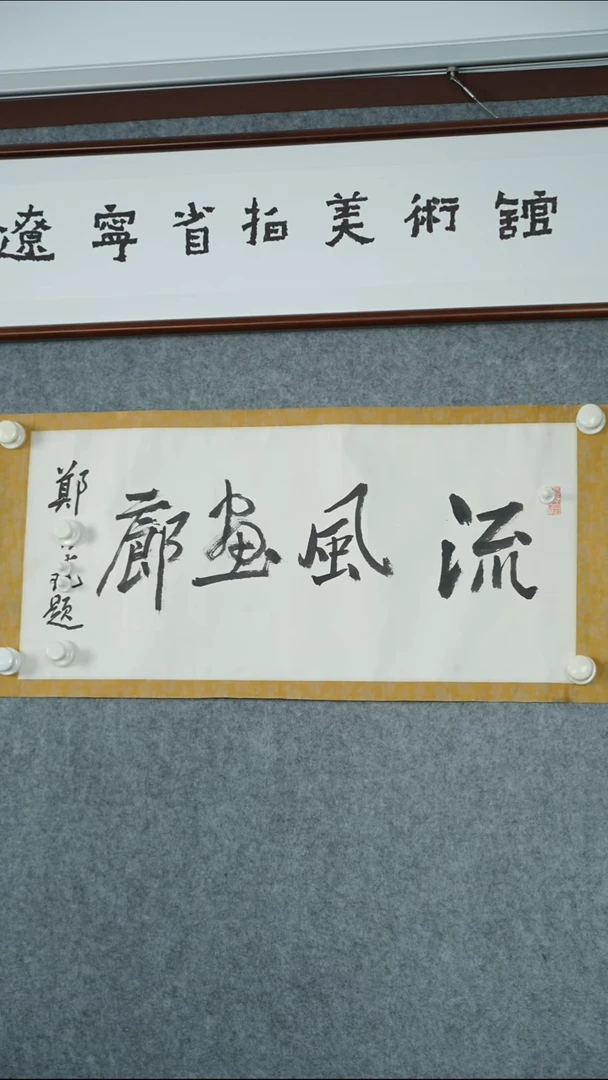 遼寧省拍美術館
流風畫廊
鄭
題